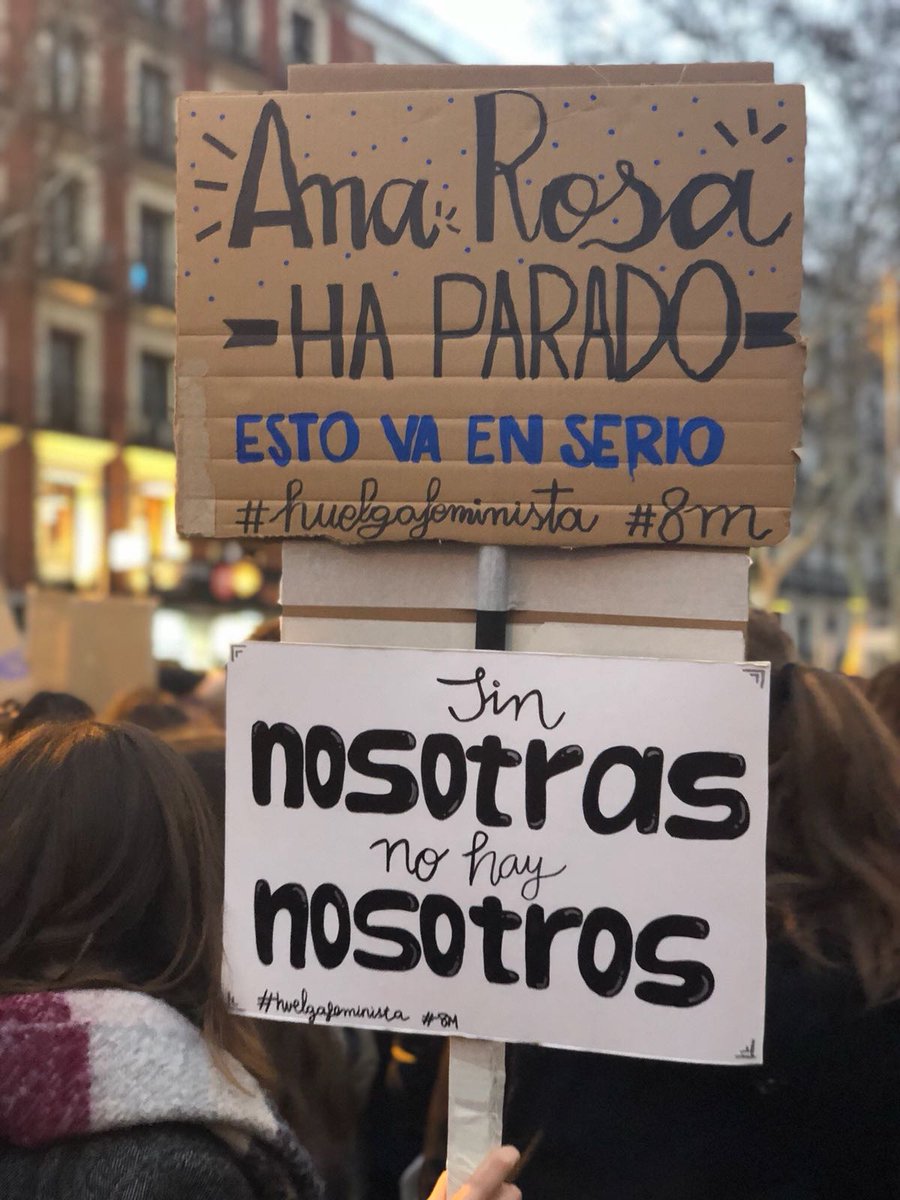 Ana Rosa
HA PARADO
ESTO VA EN SERIO
#huelgafeminista #8m
Sin
nosotras
no hay
nosotros
#huelgafeminista #8M